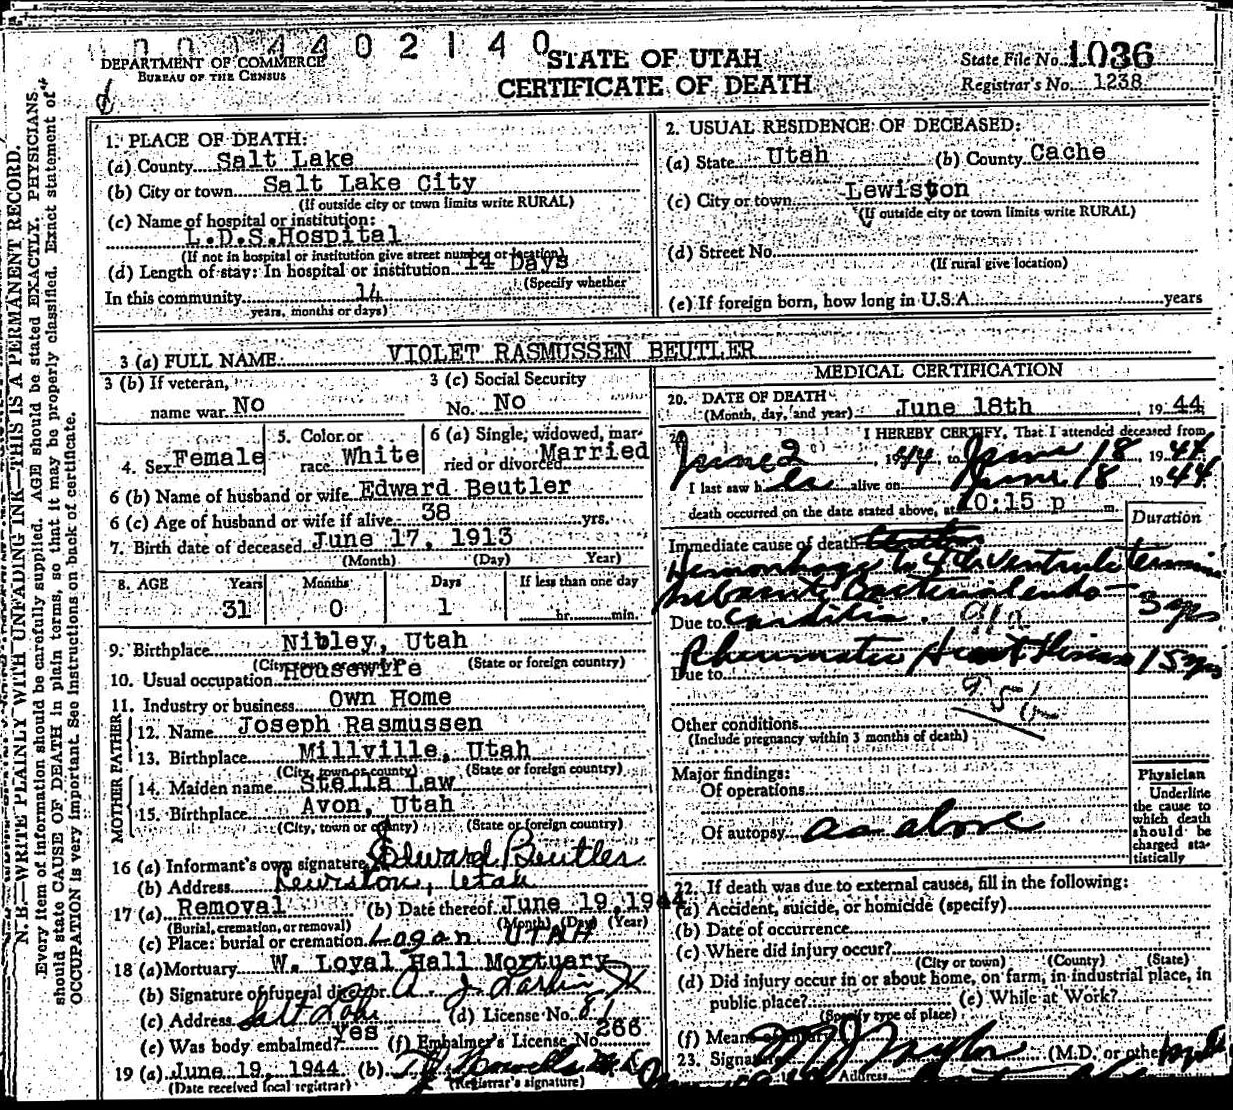 0004402140
DEPARTMENT OF COMMERCE
BUREAU OF THE CENSUS
STATE OF UTAH
CERTIFICATE OF DEATH
State File No. 1036
Registrar's No. 1238
N. B.—WRITE PLAINLY WITH UNFADING INK—THIS IS A PERMANENT RECORD.
Every item of information should be carefully supplied. AGE should be stated EXACTLY. PHYSICIANS
should state CAUSE OF DEATH in plain terms, so that it may be properly classified. Exact statement of
OCCUPATION is very important. See instructions on back of certificate.
1. PLACE OF DEATH:
(a) County Salt Lake
(b) City or town Salt Lake City
(If outside city or town limits write RURAL)
(c) Name of hospital or institution:
L.D.S.Hospital
(If not in hospital or institution give street number or location)
(d) Length of stay: In hospital or institution 14 Days
(Specify whether
In this community 14
years, months or days)
2. USUAL RESIDENCE OF DECEASED:
(a) State Utah (b) County Cache
(c) City or town Lewiston
(If outside city or town limits write RURAL)
(d) Street No.
(If rural give location)
(e) If foreign born, how long in U.S.A. years
3 (a) FULL NAME VIOLET RASMUSSEN BEUTLER
3 (b) If veteran, 3 (c) Social Security
name war No No. No
4. Sex Female 5. Color or race White 6 (a) Single, widowed, married or divorced Married
6 (b) Name of husband or wife Edward Beutler
6 (c) Age of husband or wife if alive 38 yrs.
7. Birth date of deceased June 17, 1913
(Month) (Day) Year)
8. AGE Years Months Days If less than one day
31 0 1 hr. min.
9. Birthplace Nibley, Utah
(City, town or county) (State or foreign country)
10. Usual occupation Housewife
11. Industry or business Own Home
FATHER
12. Name Joseph Rasmussen
13. Birthplace Millville, Utah
(City, town or county) (State or foreign country)
MOTHER
14. Maiden name Stella Law
15. Birthplace Avon, Utah
(City, town or county) (State or foreign country)
16 (a) Informant's own signature Edward Beutler
(b) Address Lewiston, Utah
17 (a) Removal (b) Date thereof June 19, 1944
(Burial, cremation, or removal) (Month) (Day) (Year)
(c) Place: burial or cremation Logan UTAH
18 (a) Mortuary W. Loyal Hall Mortuary
(b) Signature of funeral director A. J. Larkin
(c) Address Salt Lake (d) License No. 81
(e) Was body embalmed? Yes (f) Embalmer's License No. 266
19 (a) June 19, 1944 (b)
(Date received local registrar) (Registrar's signature)
MEDICAL CERTIFICATION
20. DATE OF DEATH
(Month, day, and year) June 18th, 1944
21. I HEREBY CERTIFY, That I attended deceased from
June 2, 1944 to June 18, 1944
I last saw her alive on June 18, 1944
death occurred on the date stated above, at 10:15 p m.
Duration
Immediate cause of death
Hemorrhage in 4th Ventricle
Subacute Bacterial endo-
Due to carditis. 91a 3
Rheumatic Heart Disease 15 yrs
Due to
95
Other conditions
(Include pregnancy within 3 months of death)
Major findings:
Of operations
Of autopsy as above
Physician
Underline
the cause to
which death
should be
charged sta-
tistically
22. If death was due to external causes, fill in the following:
(a) Accident, suicide, or homicide (specify)
(b) Date of occurrence
(c) Where did injury occur?
(City or town) (County) (State)
(d) Did injury occur in or about home, on farm, in industrial place, in
public place? (e) While at Work?
(Specify type of place)
(f) Means of injury
23. Signature (M.D. or other)
Address